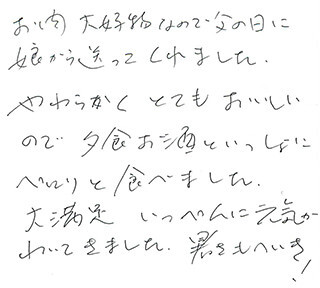 お肉 大好物なので父の日に
娘から送ってくれました.
やわらかく とても おいしい
ので 夕食お酒といっしょに
ペロリと食べました.
大満足 いっぺんに元気が
わいてきました. 暑さもへいき!